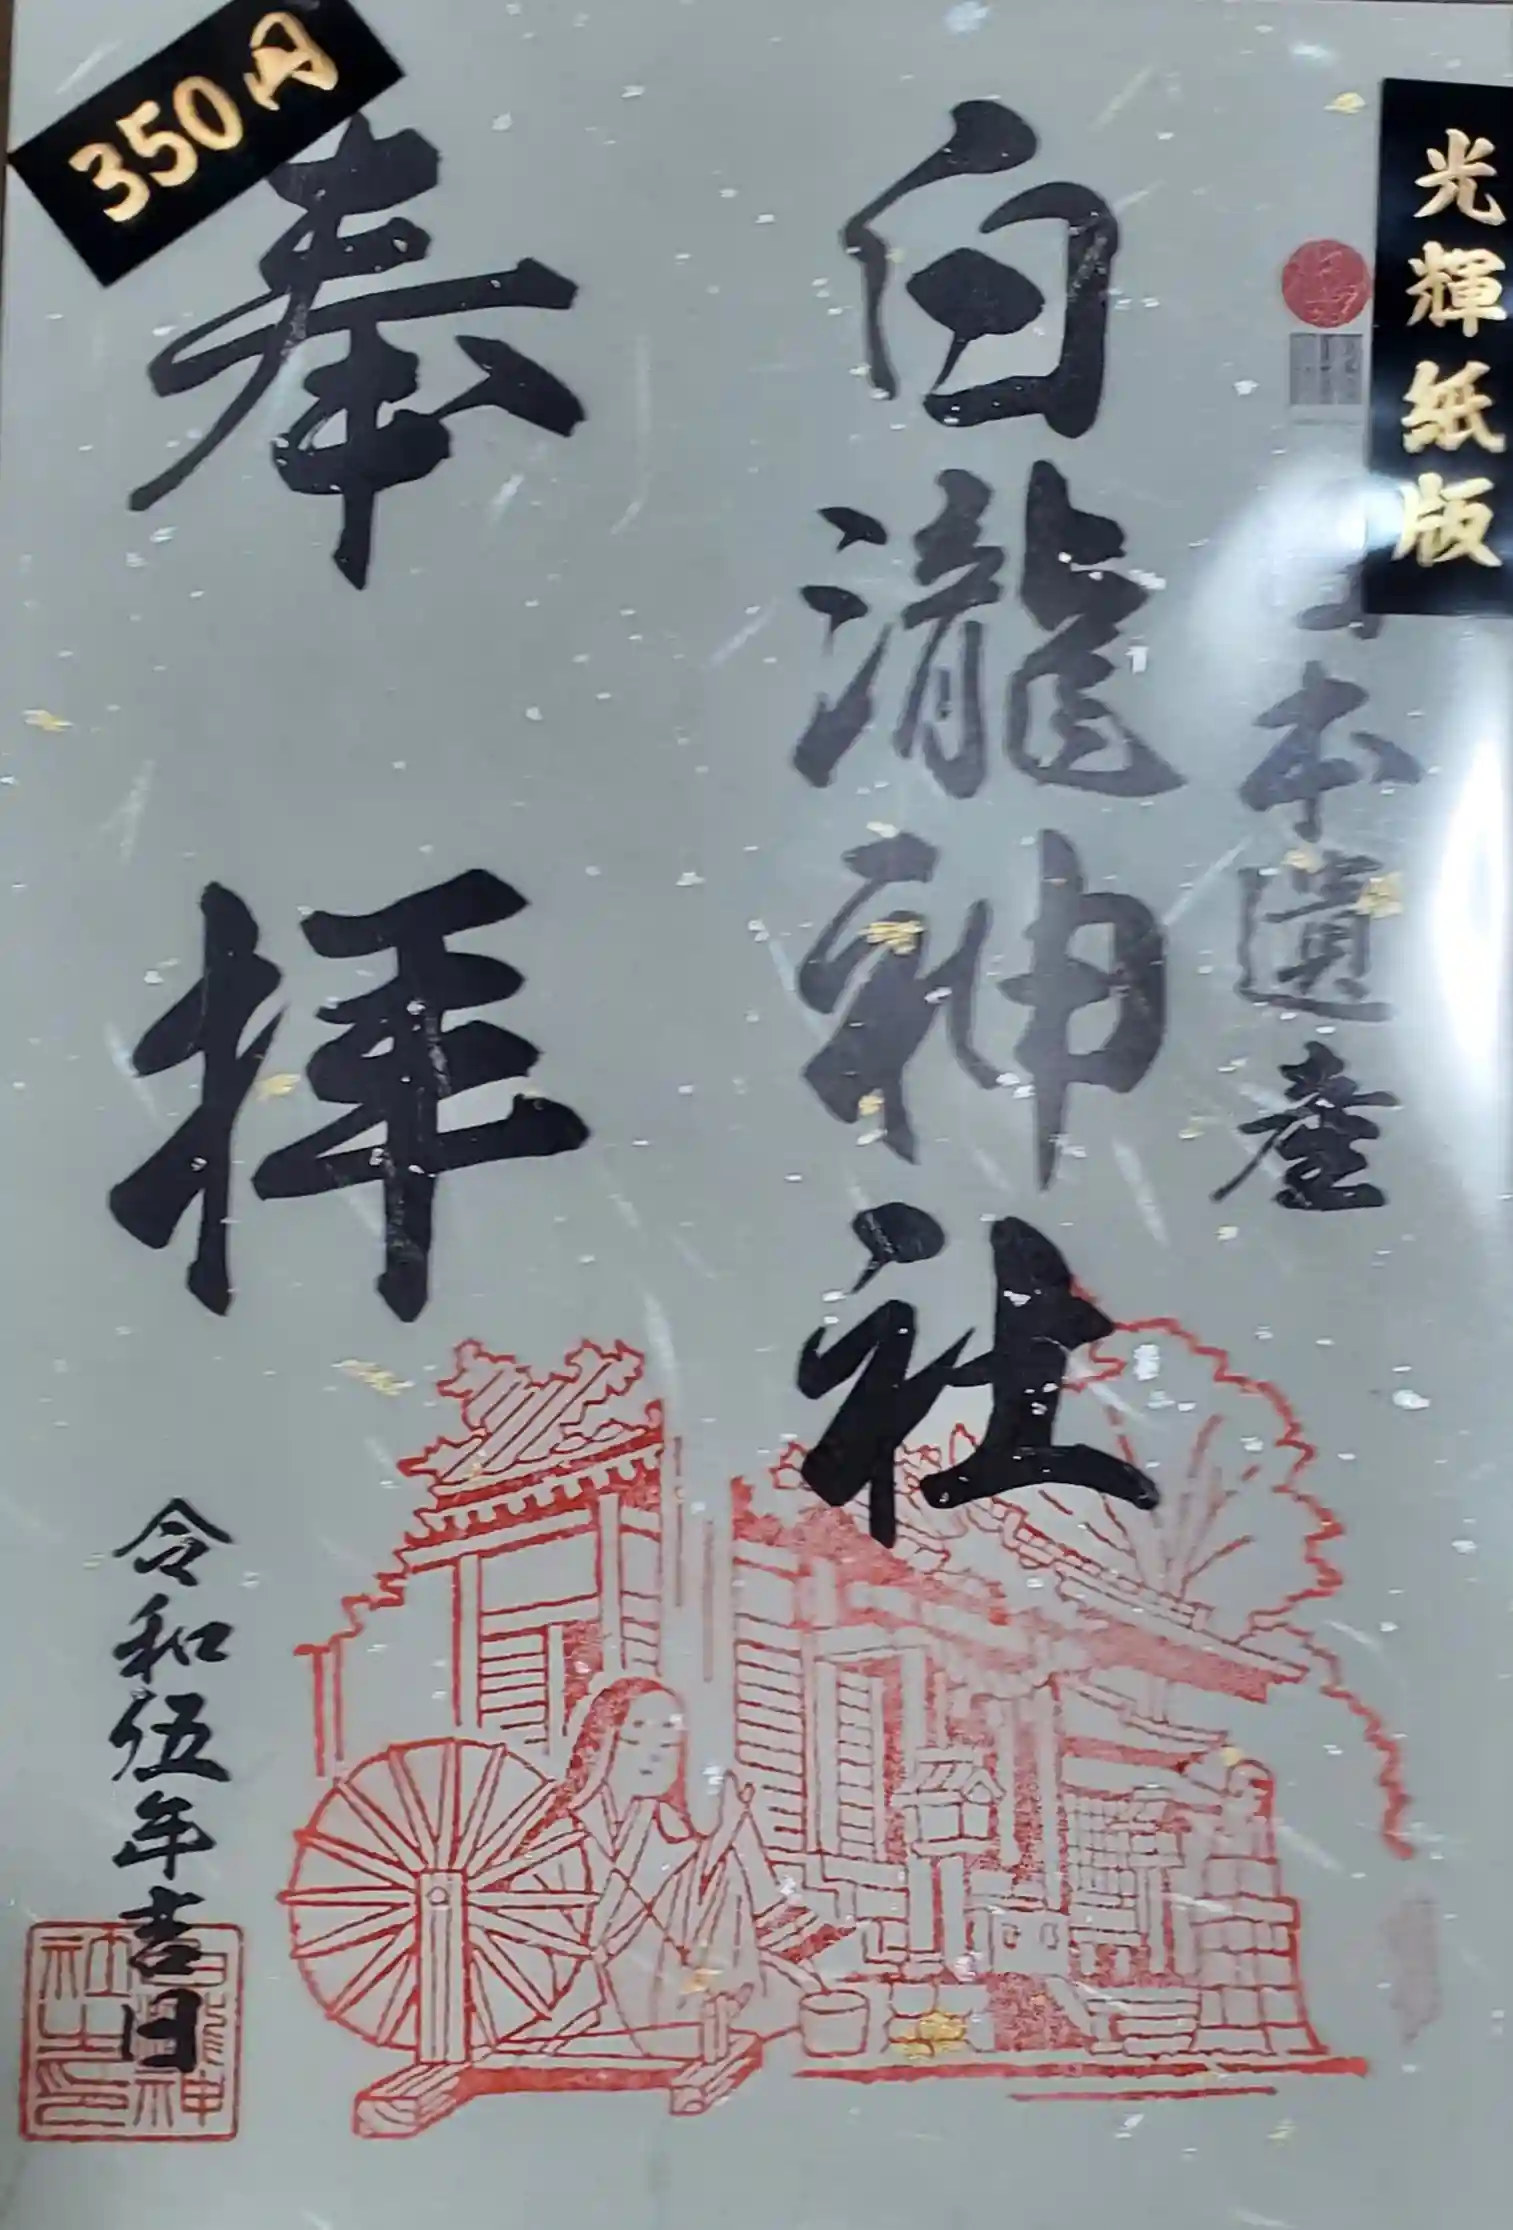 光輝紙版
本遺産
白瀧神社
350円
奉拝
令和伍年吉日